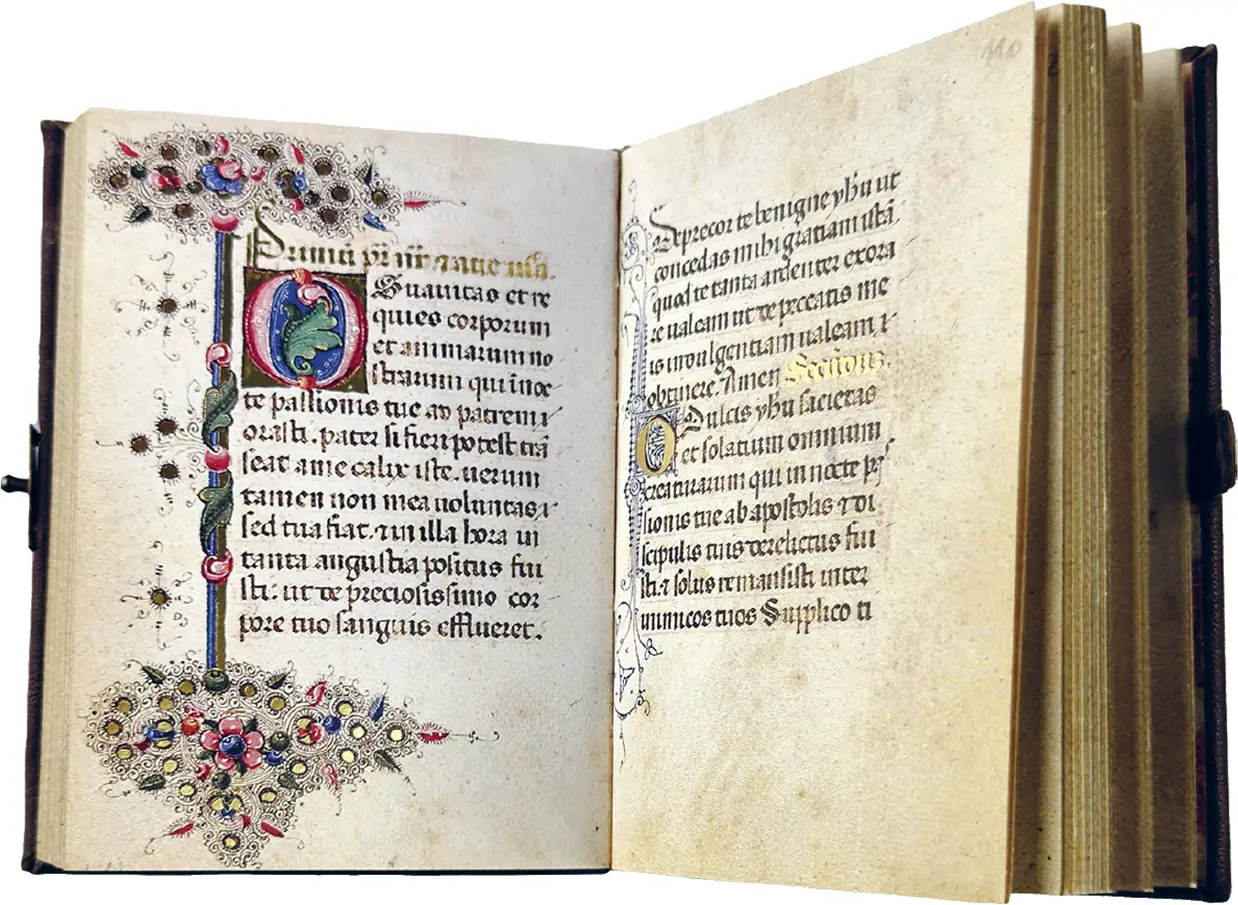 O Suavitas et re
quies corporum
et animarum no
strarum qui i noc
te passionis tue ad patrem
orasti. pater si fieri potest trā
seat a me calix iste. uerum
tamen non mea uoluntas
sed tua fiat. ⁊ in illa hora in
tanta angustia positus fui
sti: ut de preciosissimo cor
pore tuo sanguis efflueret.
110
Deprecor te benigne yhu ut
concedas mihi gratiam istā
quod te tanta ardenter exora
re ualeam ut de peccatis me
is indulgentiam ualeam
obtinere. Amen
O Dulcis yhu sacietas
et solatium omnium
creaturarum qui in nocte pas
sionis tue ab apostolis ⁊ di
scipulis tuis derelictus fui
sti. ⁊ solus remansisti inter
inimicos tuos Supplico ti